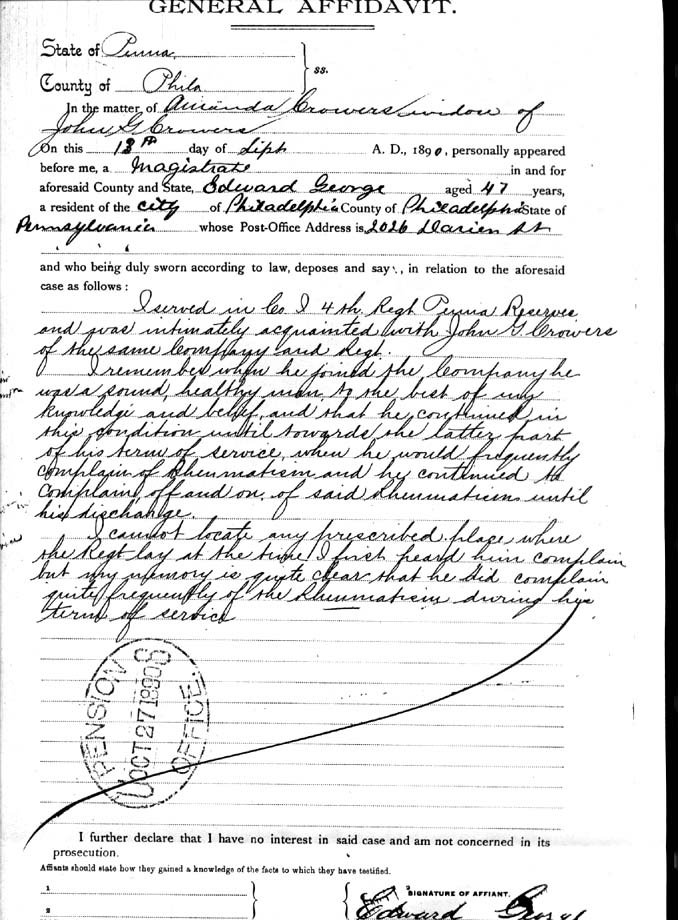 GENERAL AFFIDAVIT.
State of Penna
ss.
County of Phila
In the matter of Amanda Crowers widow of
John G Crowers
On this 13th day of Sept A. D., 1890, personally appeared
before me, a Magistrate in and for
aforesaid County and State, Edward George aged 47 years,
a resident of the city of Philadelphia County of Philadelphia State of
Pennsylvania whose Post-Office Address is 2026 Darien St
and who being duly sworn according to law, deposes and says, in relation to the aforesaid
case as follows:
I served in Co. I 4th Regt Penna Reserves
and was intimately acquainted with John G. Crowers
of the same Company and Regt.
I remember when he joined the Company he
was a sound, healthy man, to the best of my
knowledge and belief, and that he continued in
this condition until towards the latter part
of his term of service, when he would frequently
complain of Rheumatism and he continued to
complain, off and on, of said Rheumatism until
his discharge.
I cannot locate any prescribed place, where
the Regt lay at the time I first heard him complain
but my memory is quite clear that he did complain
quite frequently of the Rheumatism during his
term of service
PENSION
OCT 27 1890
OFFICE.
I further declare that I have no interest in said case and am not concerned in its
prosecution.
Affiants should state how they gained a knowledge of the facts to which they have testified.
1
SIGNATURE OF AFFIANT.
2
Edward George